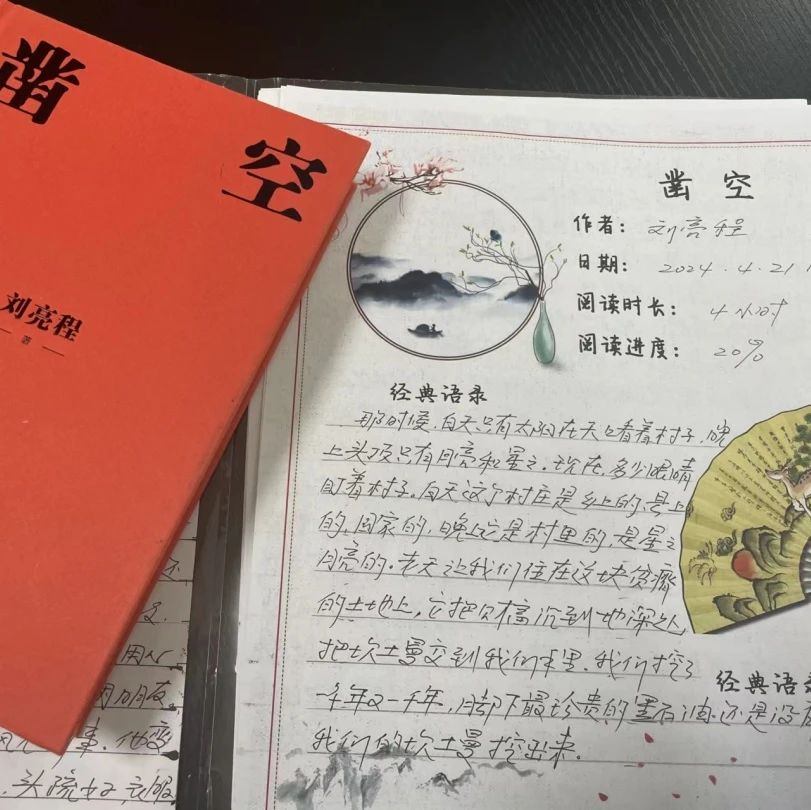 凿
空
刘亮程
著
凿空
作者：刘亮程
日期：2024.4.21
阅读时长：4小时
阅读进度：20%
经典语录
那时候,白天只有太阳在天上看着村子,晚
上头顶只有月亮和星星.现在,多少眼睛
盯着村子.白天这个村庄是乡上的,县上
的,国家的,晚上它是村里的,是星星
月亮的.老天让我们住在这块贫瘠
的土地上,它把财富沉到地深处,
把坎土曼交到我们手里.我们挖了
一千年又一千年,脚下最珍贵的黑石油还是没
我们的坎土曼挖出来.
经典语录
朋友。
事.他变
头疏好衣服